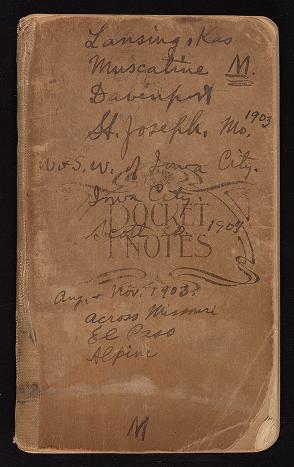 Lansing, Kas
Muscatine M.
Davenport
St. Joseph, Mo. 1903
W & S.W. of Iowa City.
Iowa City.
POCKET
Scott Co. 1904
NOTES
Aug. & Nov. 1903.
across Missouri
El Paso
Alpine
M